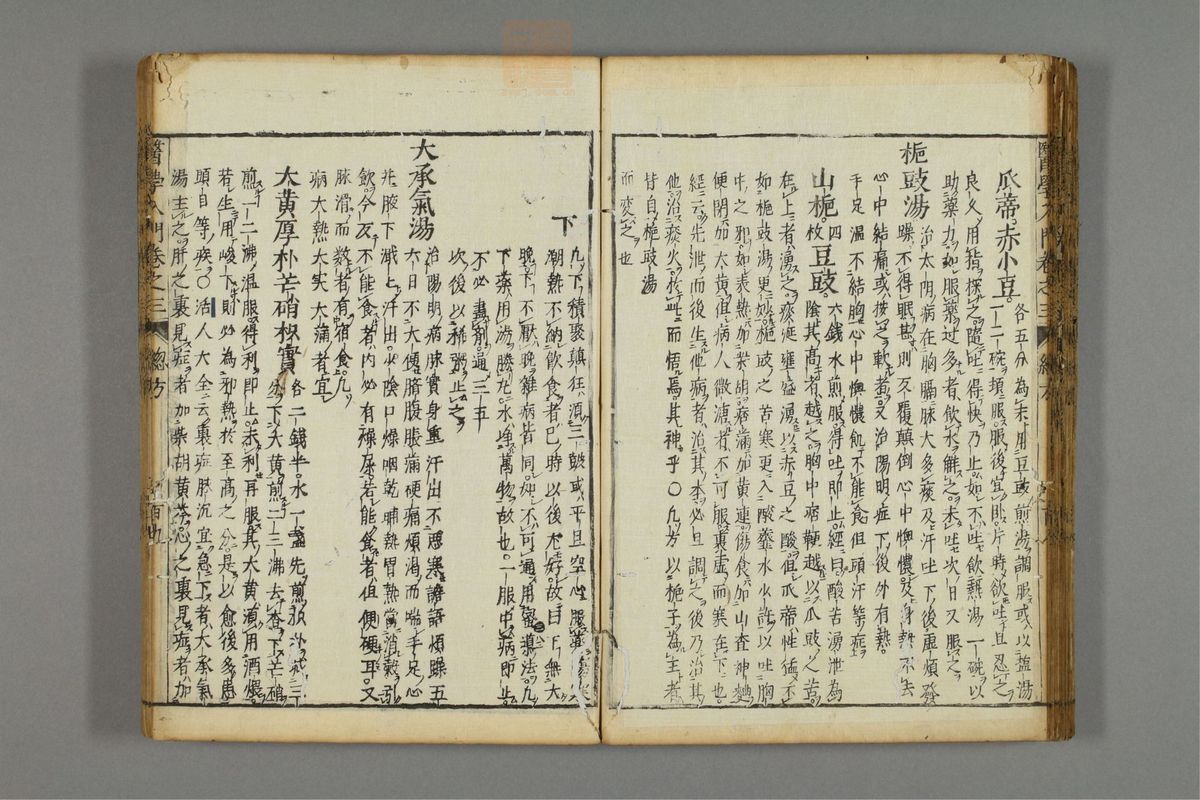 瓜蒂 赤小豆 各五分為末用豆豉煎湯調服或以韲湯
一二碗頓服服後宜臥片時欲吐且忍之
良久用指探之隨吐得快乃止如不吐飲熱湯一碗以
助藥力如服藥过多者飲水解之未吐次日又服之
梔豉湯 治太陰病在胸膈脉大多痰及汗吐下後虛煩發
躁不得眠甚則反覆顛倒心中懊憹及身熱不去
心中結痛或按之軟者又治陽明症下後外有熱
手足温不結胸心中懊憹飢不能食但頭汗等症
山梔四枚 豆豉六錢水煎服得吐即止經曰酸苦湧泄為
陰其高者越之胸中痞鞕越以瓜豉之苦
在上者湧之痰涎壅盛湧以赤豆之酸但瓜蒂性猛不
如梔豉湯更妙梔豉之苦寒更入酸虀水火許以吐胸
中之邪如表熱加柴胡痞滿加黄連傷食加山査神麯
便閉加大黄但病人微溏者不可服裏虛而寒在下也
經云先泄而後生他病者治其本必且調之後乃治其
他治痰火於此而悟焉其神乎○凢方以梔子為主者
皆自梔豉湯
而変之也
醫學入門卷之三 總方
下
凢下積聚顛狂須三皷或平旦空心服藥
潮熱不納飲食者巳時以後尤好故曰下無太
晚下不厭晚雜病皆同如不可通用蜜導法凢
下藥用湯勝丸水净萬物故也一服中病即止
不必盡劑過三五
次後以稀粥止之
大承氣湯 治陽明病脉實身重汗出不惡寒譫語煩躁五
六日不大便臍腹脹滿硬痛煩渴而喘手足心
并腋下濈上汗出少陰口燥咽乾脯熱胃熱當消穀引
飲今反不能食者内必有燥屎若能食者但便硬耳又
脉滑而數者有宿食凢
病大熱大实大蒲者宜
大黄 厚朴 芒硝 枳實 各二錢半水一盞先煎枳朴或三
沸下以大黄煎二三沸去渣下芒硝
煎一二沸温服得利即止未利再服其大黄須用酒煨
若生用峻下則必為邪熱於至髙之分是以愈後多患
頭目等疾○活人大全云裏症脉沉宜急下者大承氣
湯主之肝之裏見症者加柴胡黄芩心之裏見症者加
醫學入門卷之三 總方 百九